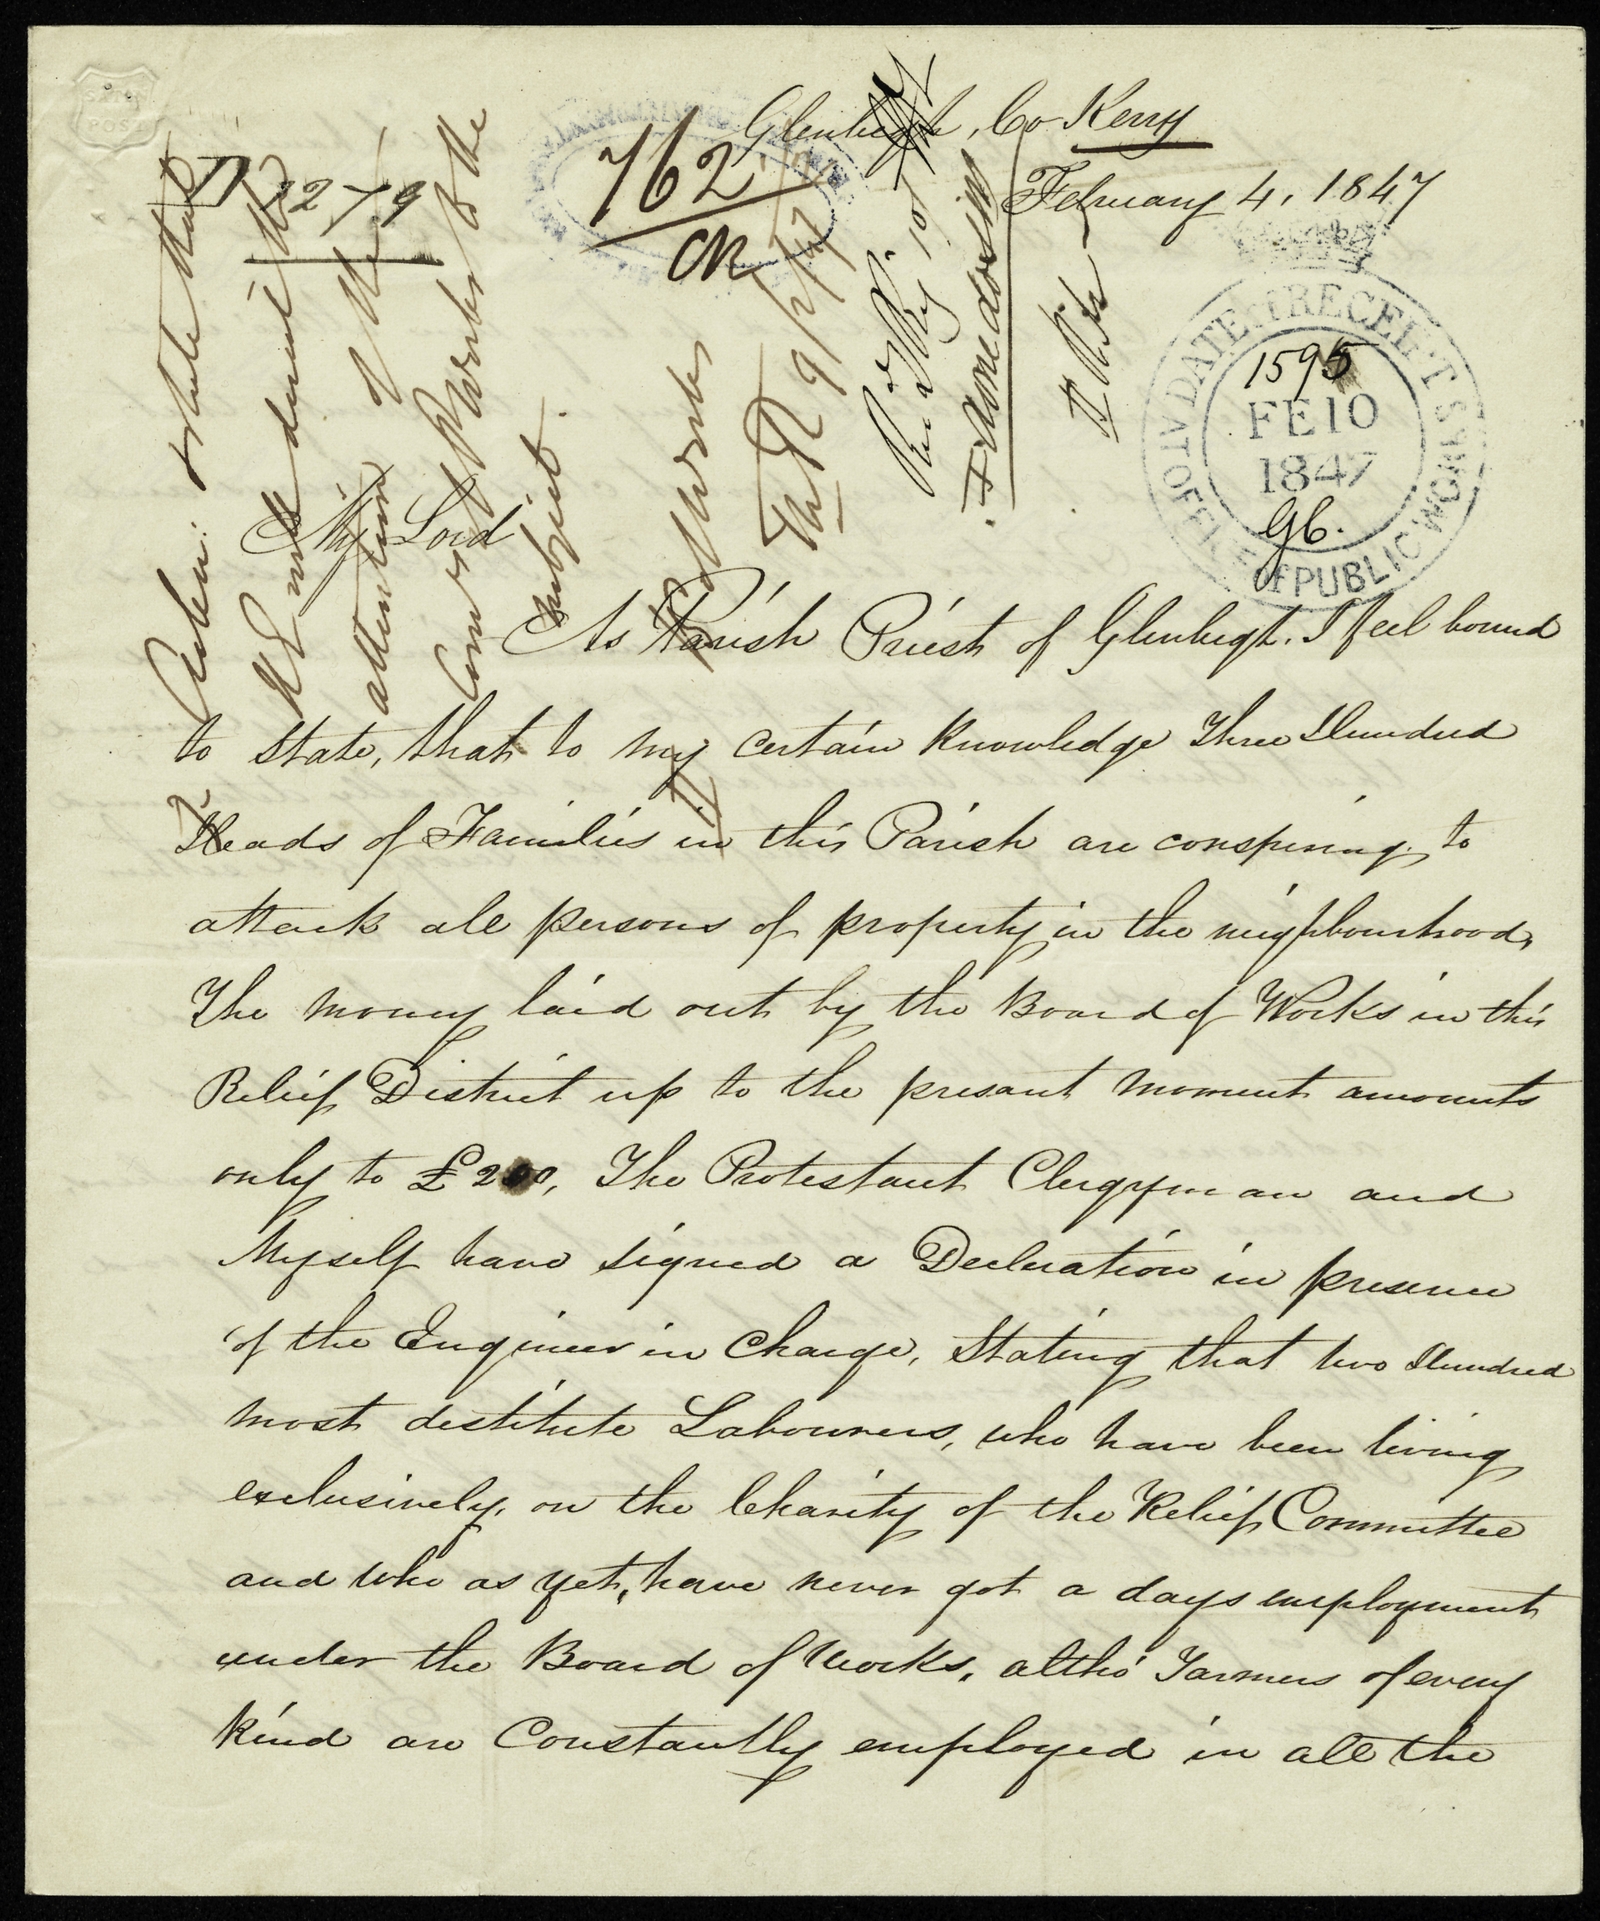 SATIN
POST
D 2279
762
CR
Glenbegh, Co Kerry
February 4, 1847
Ackn. & state that
His E will direct the
attention of the
Comrs of Pc Works to the
subject.
Pc Works
TNR 9/2/47
10
II Rita
DATE OF RECEIPT
1595
FE 10
1847
OFFICE OF PUBLIC WORKS
My Lord
As Parish Priest of Glenbegh. I feel bound
to state, that to my certain knowledge Three Hundred
Heads of Families in this Parish are conspiring to
attack all persons of property in the neighbourhood,
The money laid out by the Board of Works in this
Relief District up to the present moment amounts
only to £200, The Protestant Clergyman and
Myself have signed a Declaration in presence
of the Engineer in Charge, Stating that two Hundred
most destitute Labourers, who have been living
exclusively, on the Charity of the Relief Committee
and who as yet, have never got a days employment
under the Board of Works, altho' Farmers of every
kind are Constantly employed in all the